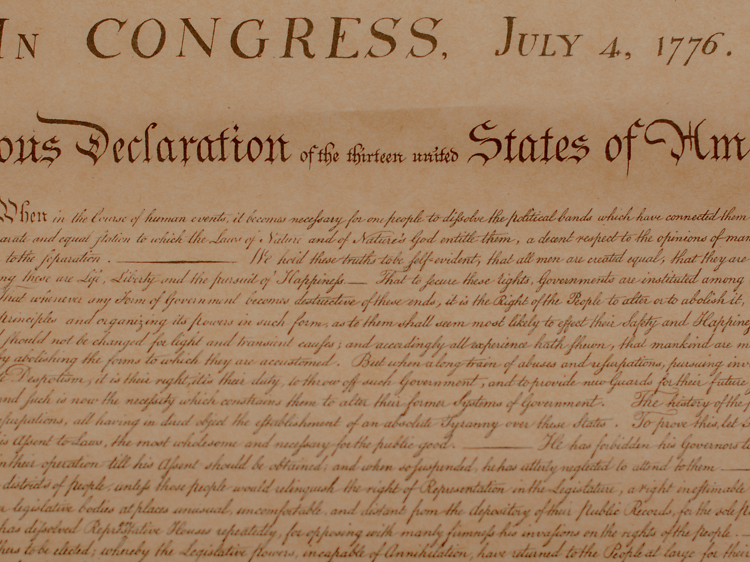 IN CONGRESS, JULY 4, 1776.
ous Declaration of the thirteen united States of Am
When in the Course of human events, it becomes necessary for one people to dissolve the political bands which have connected them
arate and equal station to which the Laws of Nature and of Nature's God entitle them, a decent respect to the opinions of man
to the separation. We hold these truths to be self-evident, that all men are created equal, that they are
ng these are Life, Liberty and the pursuit of Happiness — That to secure these rights, Governments are instituted among
That whenever any Form of Government becomes destructive of these ends, it is the Right of the People to alter or to abolish it,
principles and organizing its powers in such form, as to them shall seem most likely to effect their Safety and Happine
d should not be changed for light and transient causes; and accordingly all experience hath shewn, that mankind are m
by abolishing the forms to which they are accustomed. But when a long train of abuses and usurpations, pursuing inv
Despotism, it is their right, it is their duty, to throw off such Government, and to provide new Guards for their future
and such is now the necessity which constrains them to alter their former Systems of Government. The history of the
surpations, all having in direct object the establishment of an absolute Tyranny over these States. To prove this, let
is Assent to Laws, the most wholesome and necessary for the public good. — He has forbidden his Governors to
in their operation till his Assent should be obtained; and when so suspended, he has utterly neglected to attend to them —
districts of people, unless those people would relinquish the right of Representation in the Legislature, a right inestimable
legislative bodies at places unusual, uncomfortable, and distant from the depository of their Public Records, for the sole p
has dissolved Representative Houses repeatedly, for opposing with manly firmness his invasions on the rights of the people. —
thers to be elected; whereby the Legislative powers, incapable of Annihilation, have returned to the People at large for their